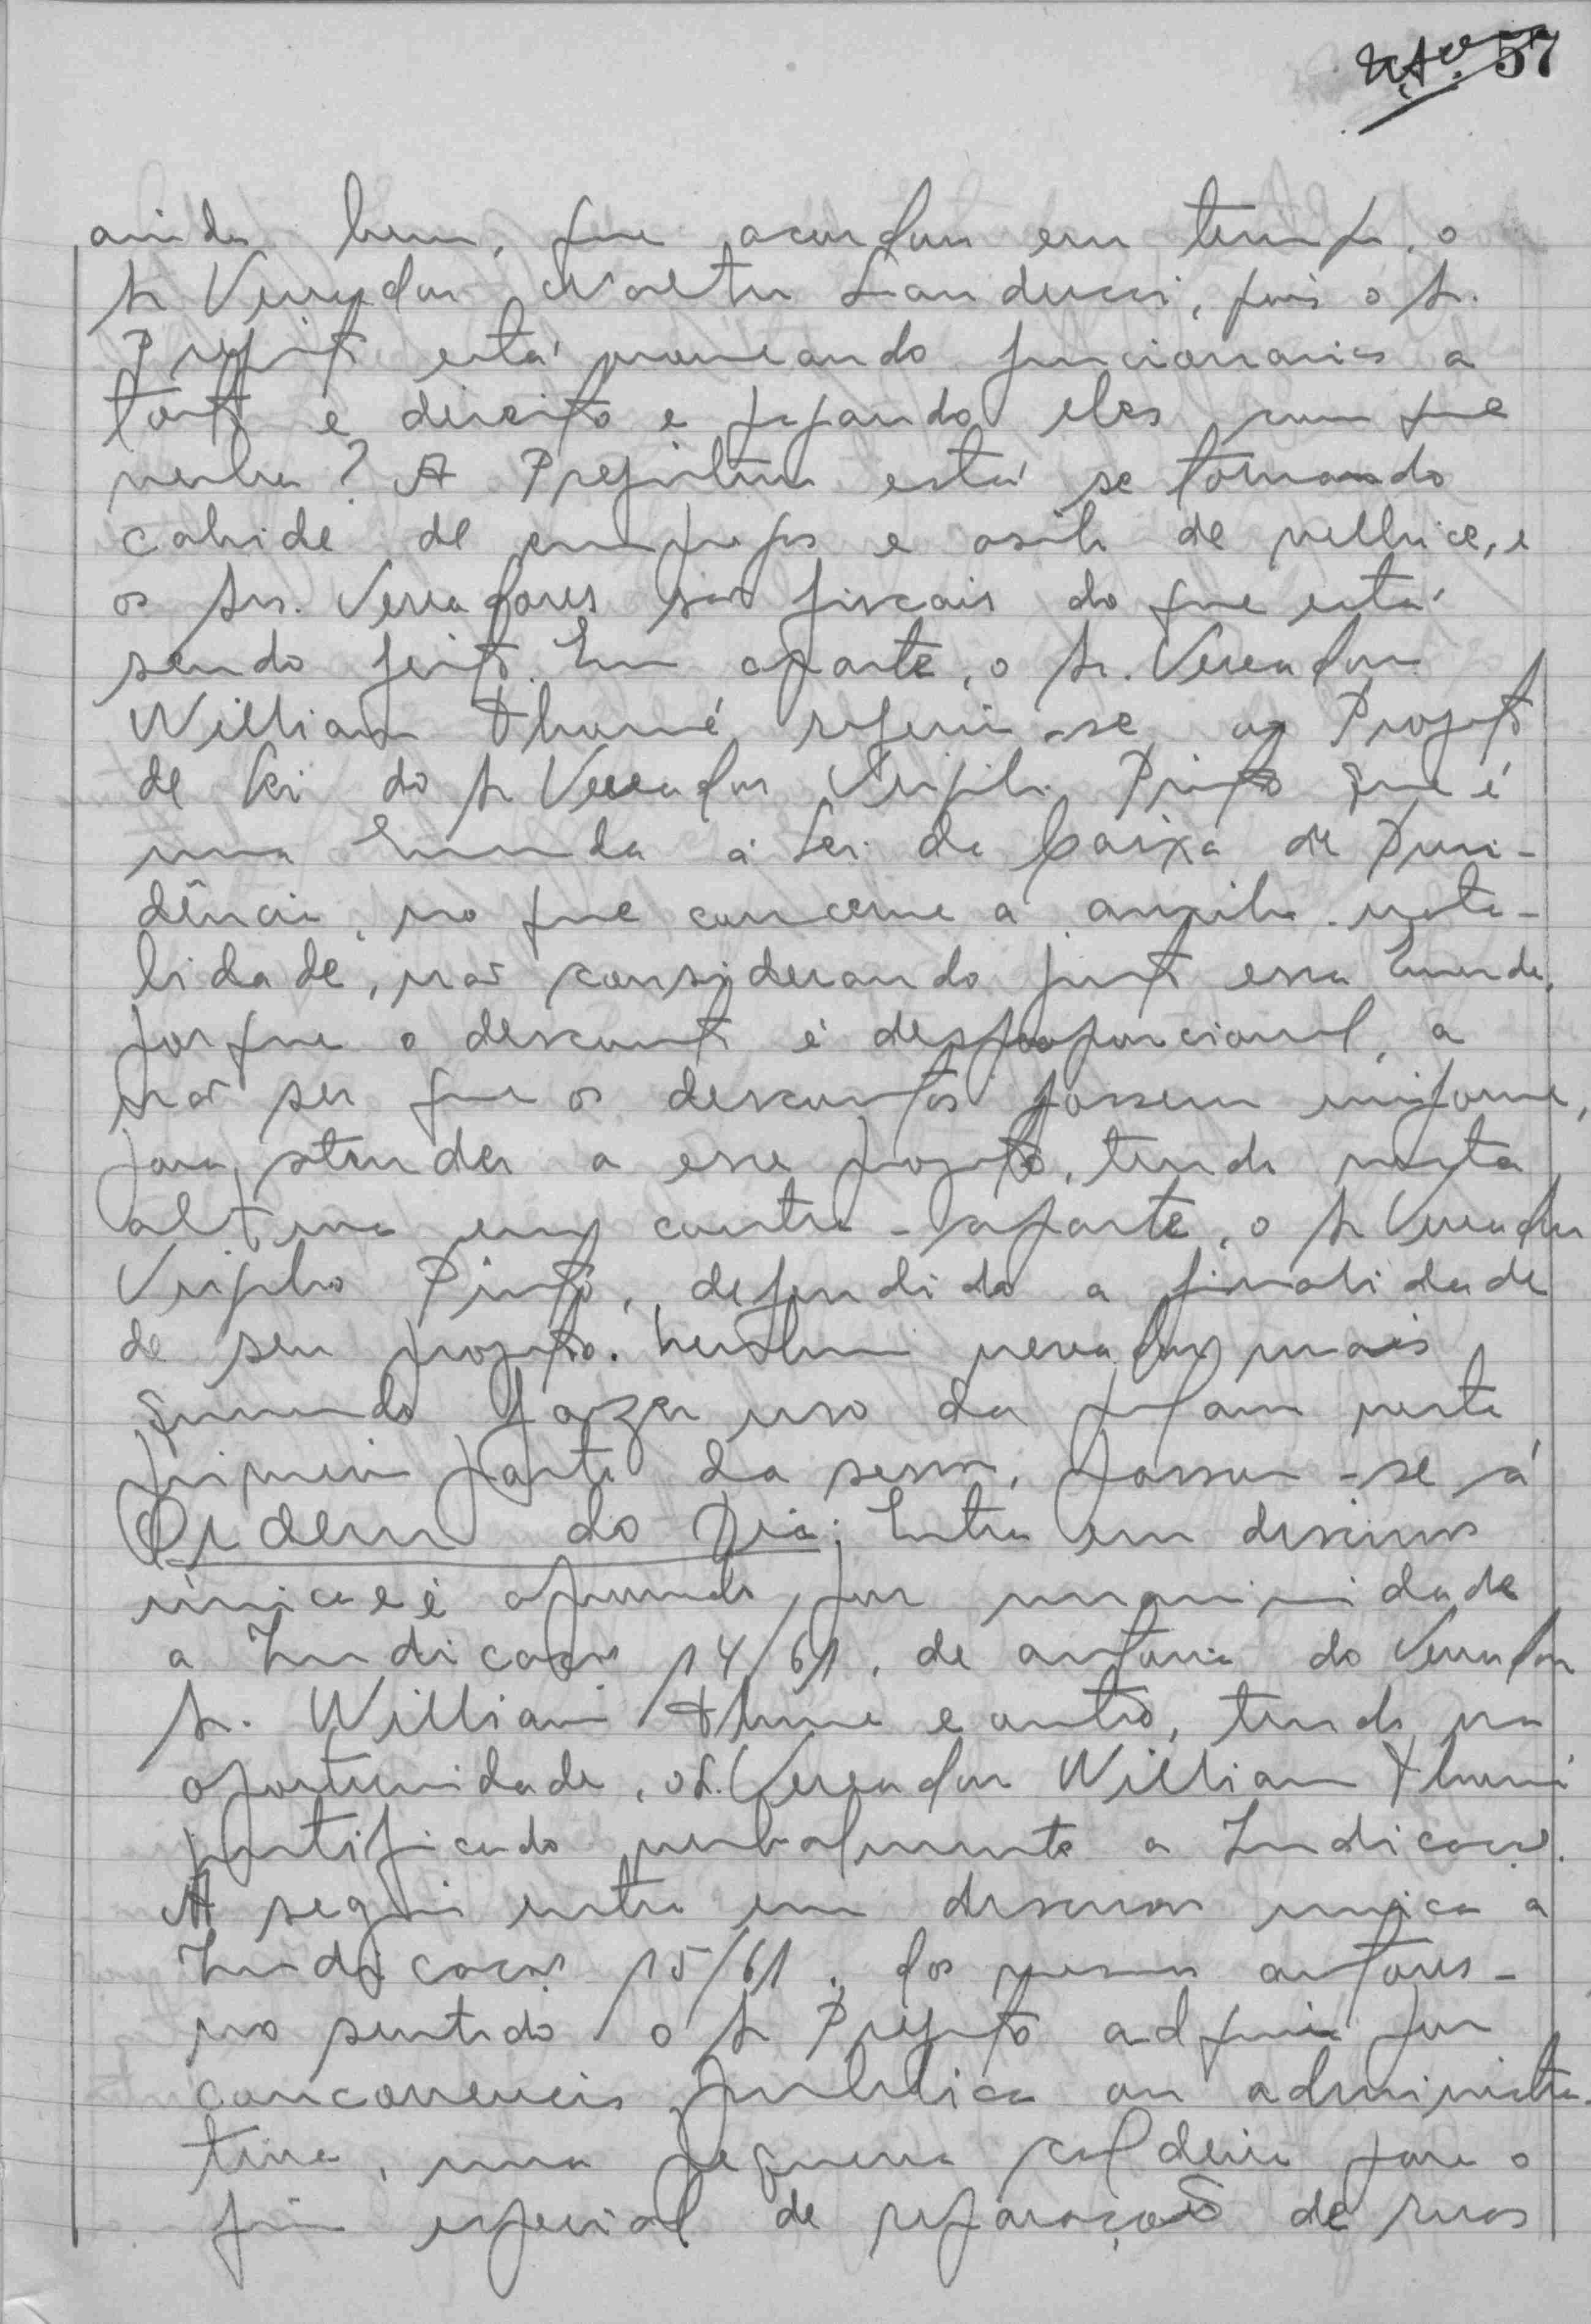 57
ainda bem, que acordou em tempo, o
Sr Vereador Walter Landucci, pois o Sr.
Prefeito está nomeando funcionarios a
torto e direito e pagando eles com que
verba? A Prefeitura está se tornando
cabide de empregos e asilo de velhice, e
os Srs. Vereadores são fiscais do que está
sendo feito. Em aparte, o Sr. Vereador
William Thomé referiu-se ao Projeto
de lei do Sr Vereador Virgilio Pinto que é
uma Emenda á Lei da Caixa de Previ-
dência, no que concerne a auxilio nata-
lidade, não considerando justo essa Emenda,
porque o desconto é desproporcional, a
não ser que os descontos fossem uniforme,
para atender a esse projeto, tendo nesta
altura em contra-aparte, o Sr Vereador
Virgilio Pinto, defendido a finalidade
de seu projeto. Nenhum vereador mais
querendo fazer uso da palavra nesta
primeira parte da sessão, passou-se á
Ordem do Dia: Entra em discussão
única e é aprovada por unanimidade
a Indicação 14/61, de autoria do Vereador
Sr. William Thomé e outro, tendo na
oportunidade, o Sr. Vereador William Thomé
justificado verbalmente a Indicação.
A seguir entra em discussão unica a
Indicação 15/61, dos mesmos autores -
no sentido o Sr Prefeito adquirir por
concorrencia publica ou administra-
tiva, uma pequena caldeira para o
fim especial de reparação de ruas